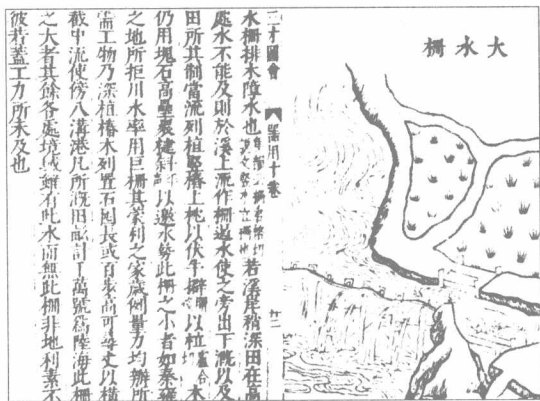 大水柵
三才圖會
器用十卷
水柵排木障水也若溪岸稍深田在高
處水不能及則於溪上流作柵遏水使之旁出下溉以及
田所其制當流列植竪樁樁上枕以伏牛擗以柆木
仍用塊石高壘衆楗斜以邀水勢此柵之小者如秦雍
之地所拒川水率用巨柵其蒙利之家歲例量力均辦所
需工物乃深植樁木列置石囤長或百步高可尋丈以橫
截中流使傍入溝港凡所溉田畝計千萬號爲陸海此柵
之大者其餘各處境域雖有此水而無此柵非地利素不
彼若蓋工力所未及也